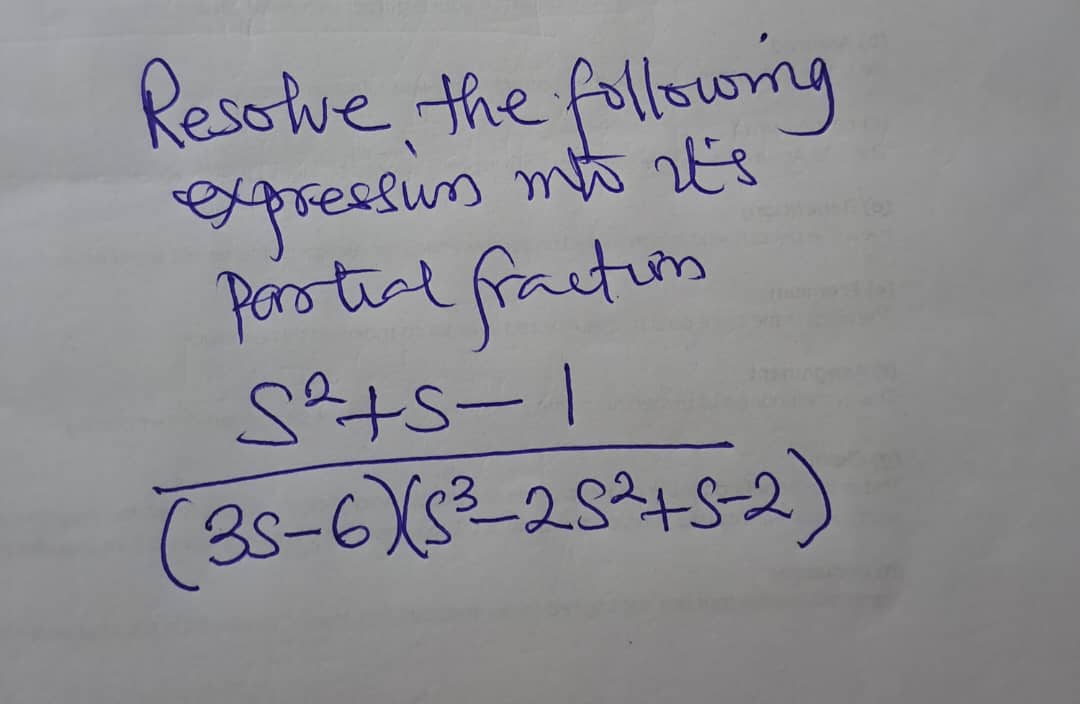 Resolve the following
expression into it's
partial fraction
S²+S-1
(3S-6)(S³-2S²+S-2)